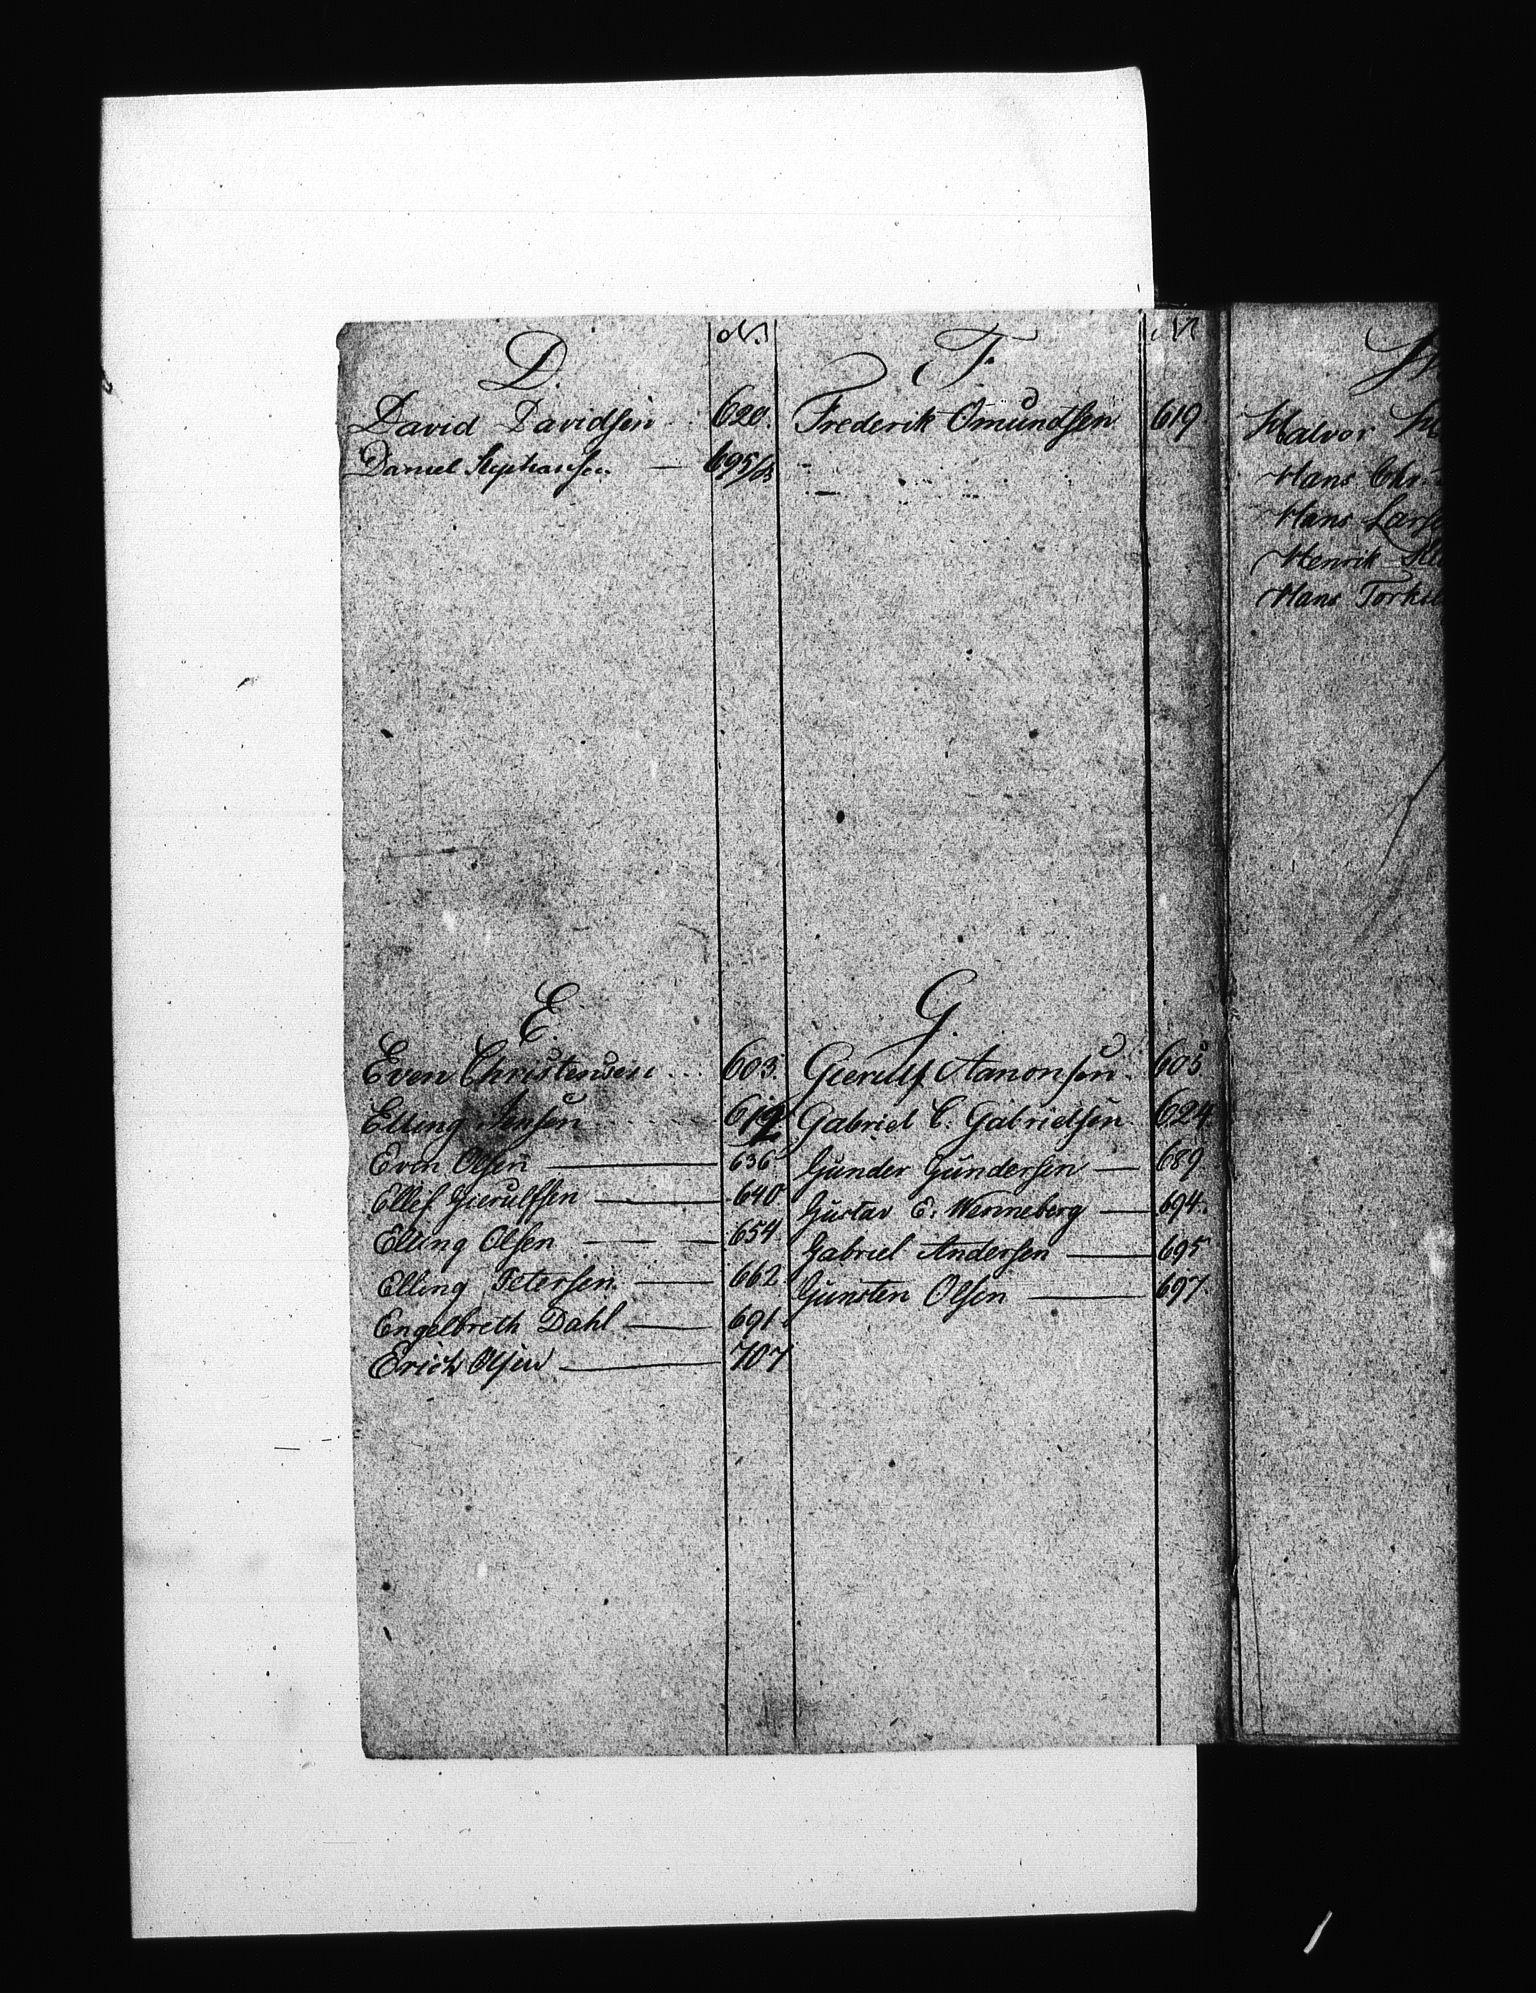 D.
N.
David Davidsen 620.
Daniel Stephansen 695/B
E.
Even Christensen 603.
Elling Jensen 612
Even Olsen 636
Ellef Gierulfsen 640
Elling Olsen 654
Elling Petersen 662
Engelbreth Dahl 691
Erich Olsen 707
F.
N
Frederik Omundsen 619
G.
Gierulf Aanonsen 605
Gabriel C. Gabrielsen 624
Gunder Gundersen 689
Gustav E. Wenneberg 694.
Gabriel Andersen 695
Gunsten Olsen 697.
Halvor
Hans Chr.
Hans Lars
Henrik
Hans Tork